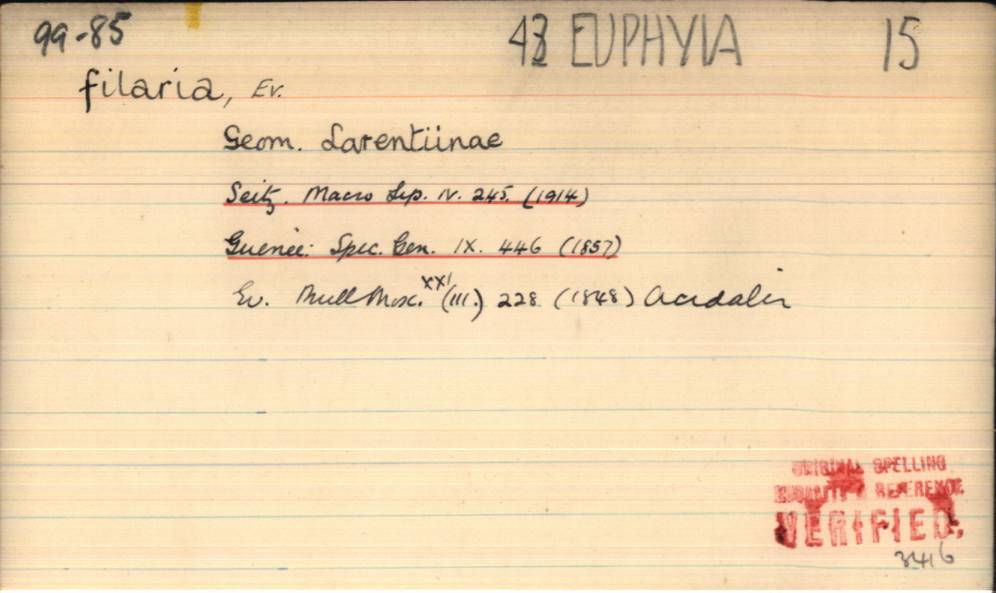 99-85 43 EUPHYIA 15
filaria, Ev.
Geom. Larentiinae
Seitz. Macro Lep. IV. 245. (1914)
Guenée: Spec. Gen. IX. 446 (1857)
Ev. Bull Mosc. XXI (III.) 228 (1848) Acidalia
ORIGINAL SPELLING
REFERENCE
VERIFIED.
3416